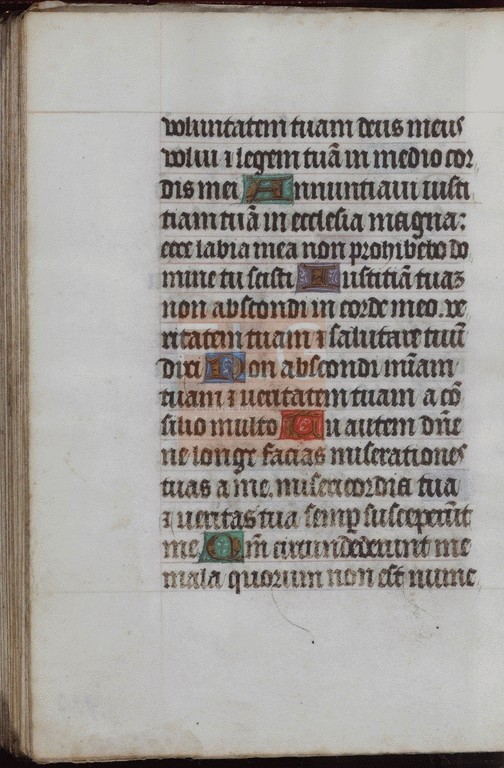 voluntatem tuam deus meus
volui ⁊ legem tuā in medio cor
dis mei Annuntiaui iusti
tiam tuā in ecclesia magna:
ecce labia mea non prohibebo do
mine tu scisti Iustitiā tuaꝫ
non abscondi in corde meo. ve
ritatem tuam ⁊ salutare tuū
dixi Non abscondi mīam
tuam ⁊ ueritatem tuam a cō
silio multo Tu autem dn̄e
ne longe facias miserationes
tuas a me. misericordia tua
⁊ ueritas tua semp susceperūt
me Qm̄ circundederunt me
mala quorum non est nume